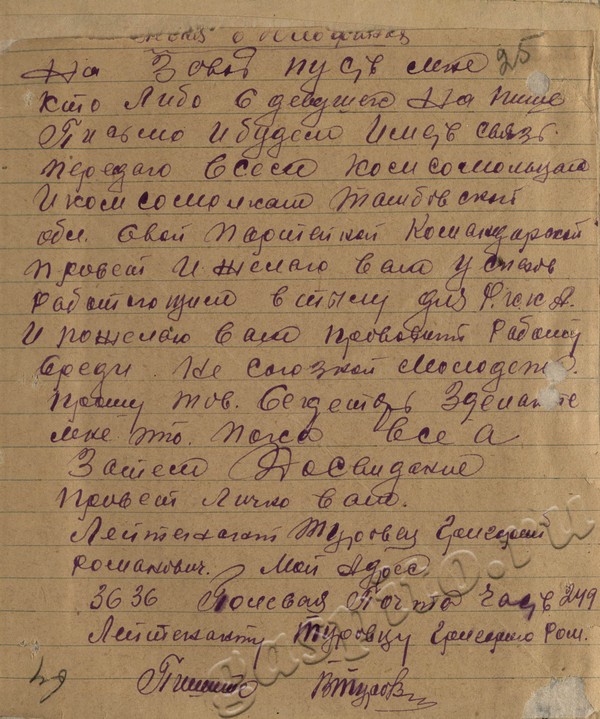 25
На Зовой пусть мне
Кто Либо с девушек На пише
Письмо И будем Иметь связь.
передаю Всем Комсомольцам
И комсомолкам Тамбовской
обл. Свой Партейной Командирской
привет И желаю вам успехов
работающим в тылу для РККА.
И пожелаю вам проводит работу
Среди Не союзной Молодежи.
прошу тов. Секретарь Зделайте
мне это. Пока все а
Затем Досвидание
привет Лично вам.
Лейтенант Туровец Григорий
Романович. Мой Адрес
3636 Полевая Почта Часть 249
Лейтенанту Туровцу Григорию Ром.
Пишите
gaspito.ru